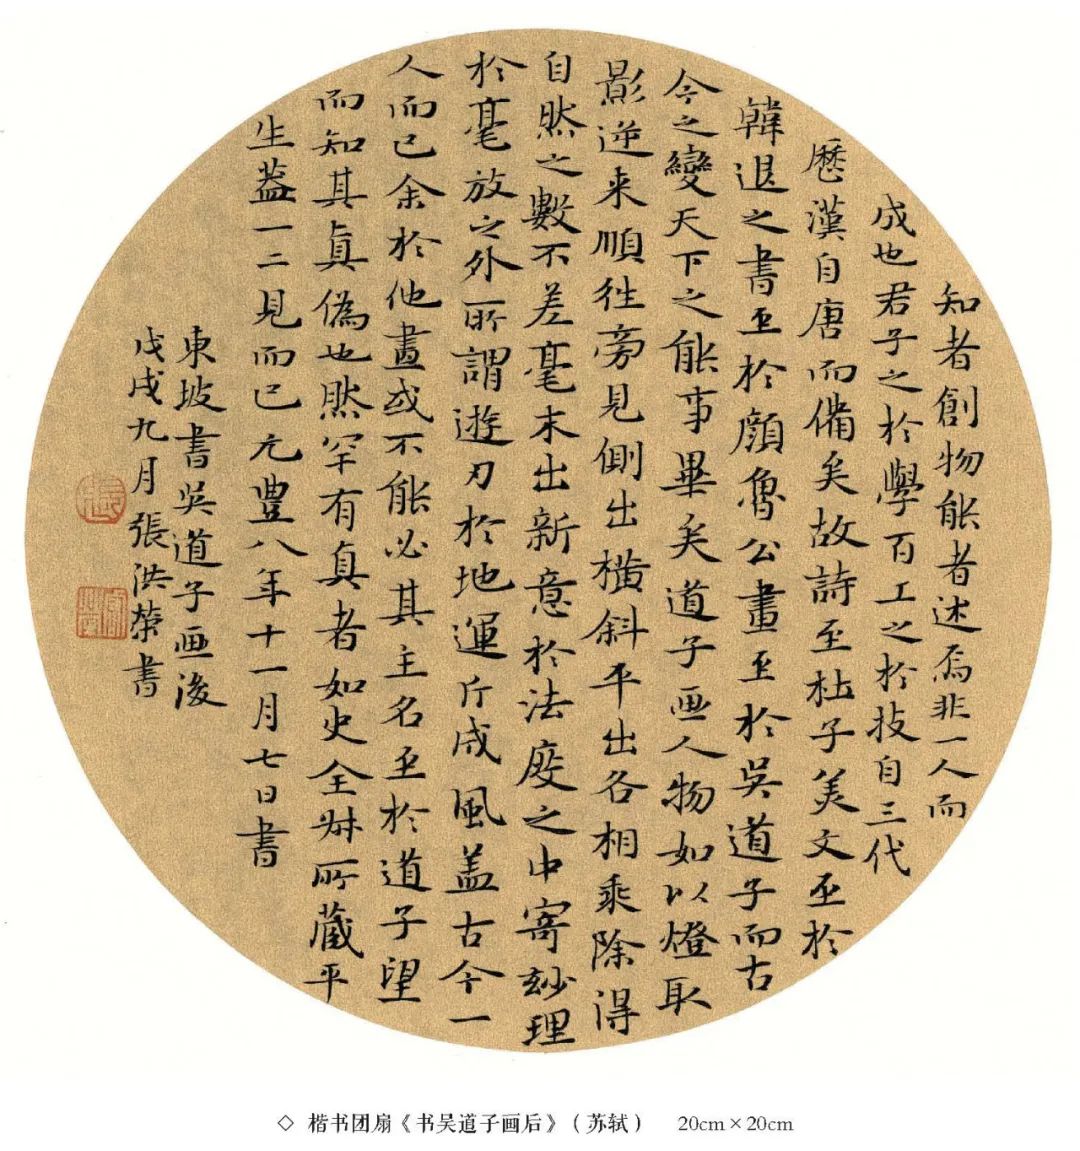 知者創物能者述焉非一人而
成也君子之於學百工之於技自三代
歷漢自唐而備矣故詩至杜子美文至於
韓退之書至於顏魯公畫至於吳道子而古
今之變天下之能事畢矣道子画人物如以燈取
影逆来順往旁見側出橫斜平出各相乘除得
自然之數不差毫末出新意於法度之中寄妙理
於毫放之外所謂遊刃於地運斤成風盖古今一
人而已余於他畫或不能必其主名至於道子望
而知其真偽也然罕有真者如史全叔所藏平
生葢一二見而已元豐八年十一月七日書
東坡書吳道子画後
戊戌九月張洪榮書
◇ 楷书团扇《书吴道子画后》（苏轼） 20cm×20cm